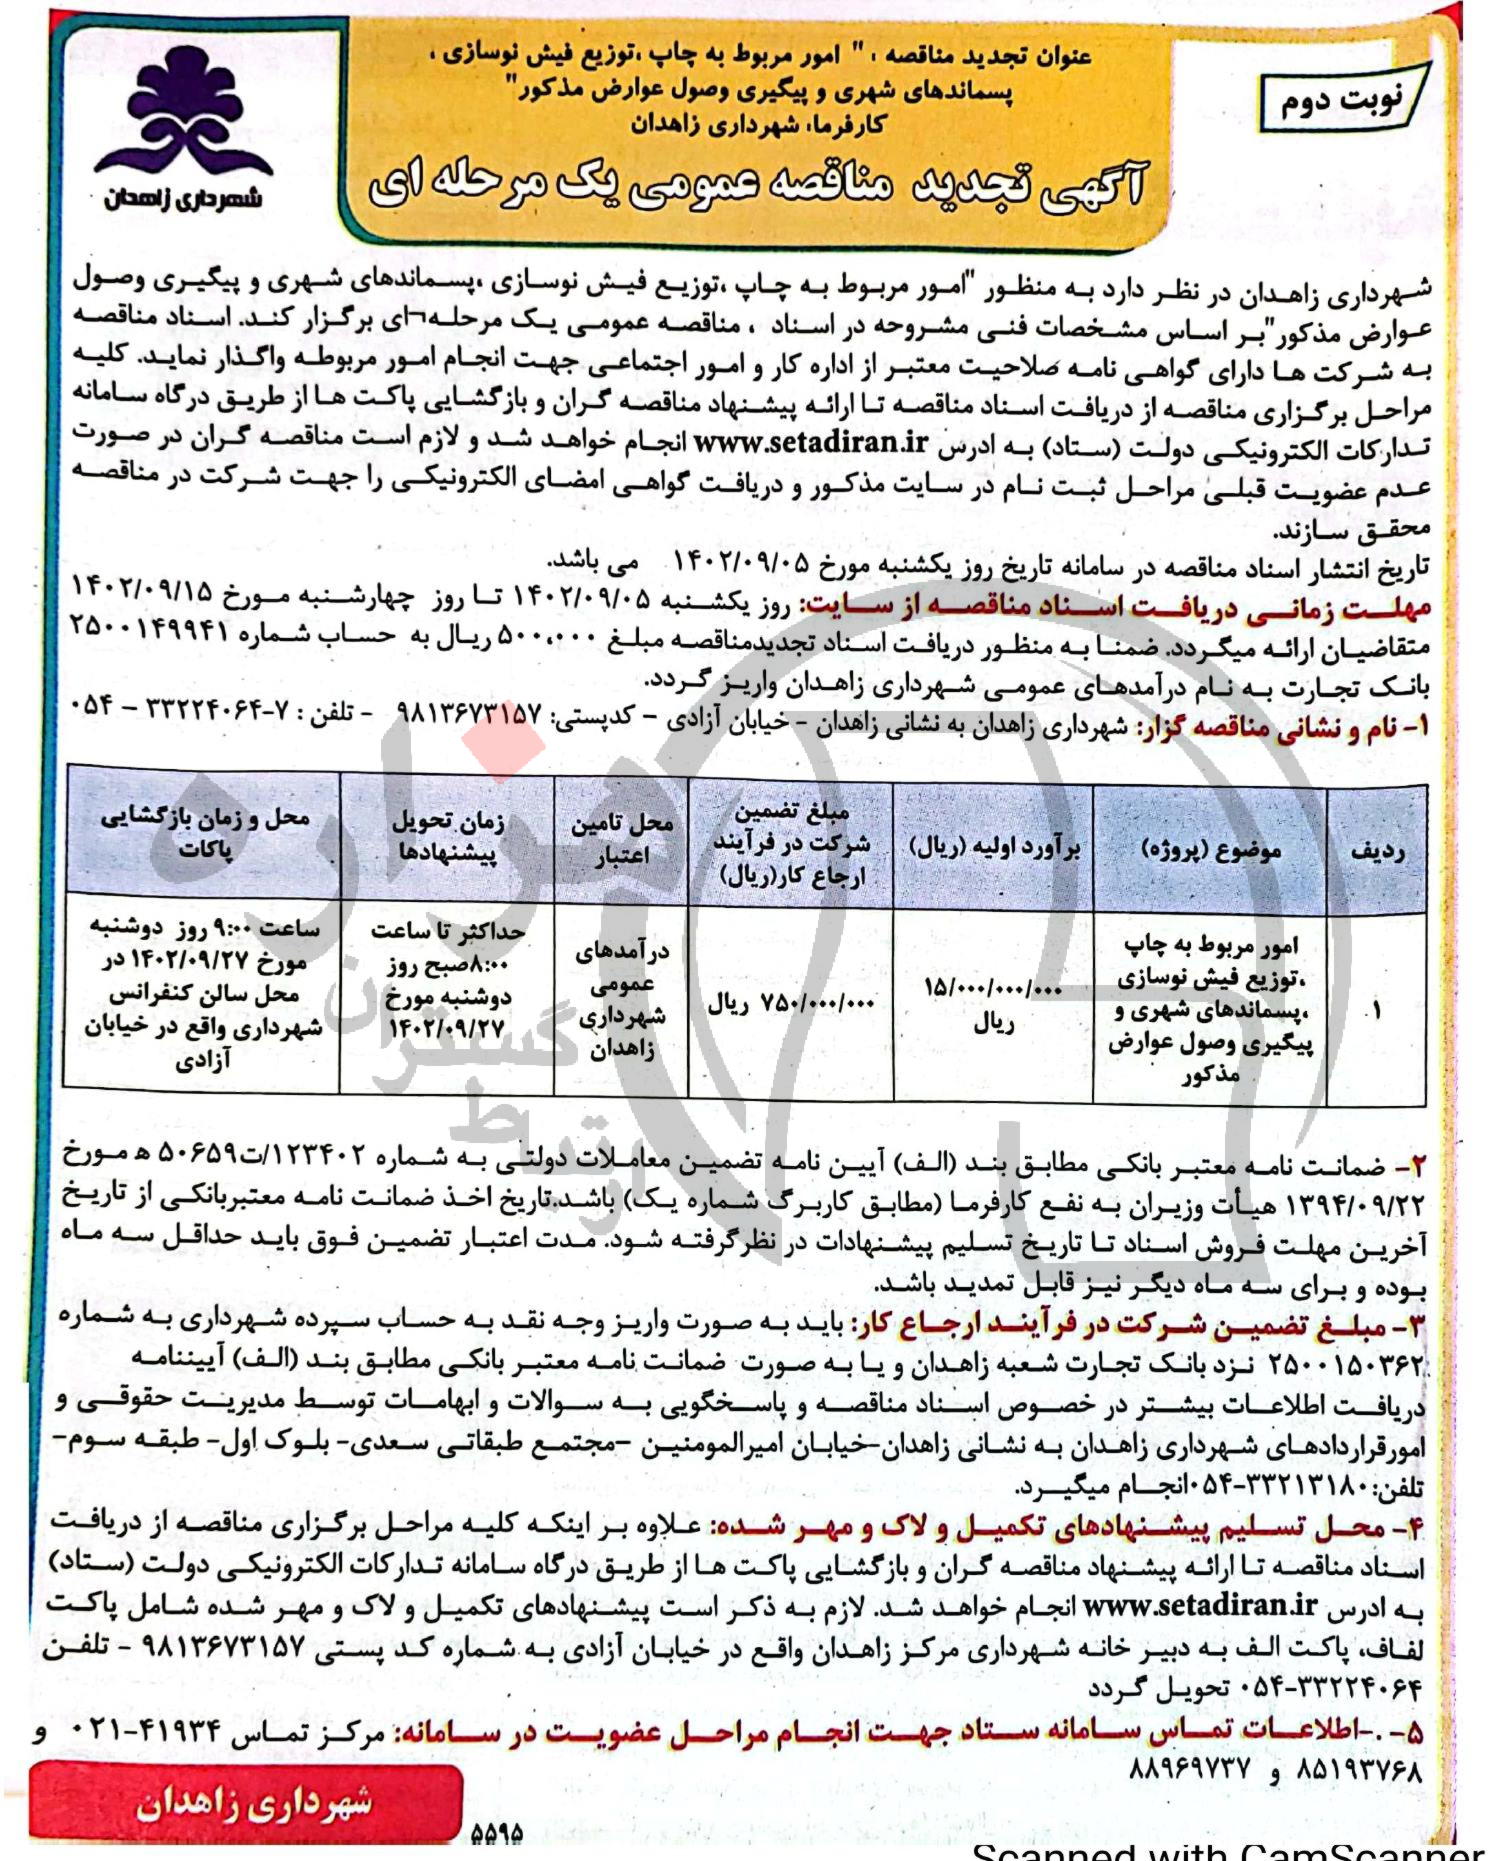 نوبت دوم
عنوان تجدید مناقصه ، " امور مربوط به چاپ ،توزیع فیش نوسازی ،
پسماندهای شهری و پیگیری وصول عوارض مذکور"
کارفرما، شهرداری زاهدان
آگهی تجدید مناقصه عمومی یک مرحله ای
شهرداری زاهدان
شهرداری زاهدان در نظر دارد به منظور "امور مربوط به چاپ ،توزیع فیش نوسازی ،پسماندهای شهری و پیگیری وصول
عوارض مذکور"بر اساس مشخصات فنی مشروحه در اسناد ، مناقصه عمومی یک مرحله¬ای برگزار کند. اسناد مناقصه
به شرکت ها دارای گواهی نامه صلاحیت معتبر از اداره کار و امور اجتماعی جهت انجام امور مربوطه واگذار نماید. کلیه
مراحل برگزاری مناقصه از دریافت اسناد مناقصه تا ارائه پیشنهاد مناقصه گران و بازگشایی پاکت ها از طریق درگاه سامانه
تدارکات الکترونیکی دولت (ستاد) به ادرس www.setadiran.ir انجام خواهد شد و لازم است مناقصه گران در صورت
عدم عضویت قبلی مراحل ثبت نام در سایت مذکور و دریافت گواهی امضای الکترونیکی را جهت شرکت در مناقصه
محقق سازند.
تاریخ انتشار اسناد مناقصه در سامانه تاریخ روز یکشنبه مورخ ۱۴۰۲/۰۹/۰۵ می باشد.
مهلت زمانی دریافت اسناد مناقصه از سایت: روز یکشنبه ۱۴۰۲/۰۹/۰۵ تا روز چهارشنبه مورخ ۱۴۰۲/۰۹/۱۵
متقاضیان ارائه میگردد. ضمنا به منظور دریافت اسناد تجدیدمناقصه مبلغ ۵۰۰،۰۰۰ ریال به حساب شماره ۲۵۰۰۱۴۹۹۴۱
بانک تجارت به نام درآمدهای عمومی شهرداری زاهدان واریز گردد.
۱- نام و نشانی مناقصه گزار: شهرداری زاهدان به نشانی زاهدان - خیابان آزادی - کدپستی: ۹۸۱۳۶۷۳۱۵۷ - تلفن : ۷-۳۳۲۲۴۰۶۴ - ۰۵۴
ردیف
موضوع (پروژه)
برآورد اولیه (ریال)
مبلغ تضمین
شرکت در فرآیند
ارجاع کار(ریال)
محل تامین
اعتبار
زمان تحویل
پیشنهادها
محل و زمان بازگشایی
پاکات
۱
امور مربوط به چاپ
،توزیع فیش نوسازی
،پسماندهای شهری و
پیگیری وصول عوارض
مذکور
۱۵/۰۰۰/۰۰۰/۰۰۰
ریال
۷۵۰/۰۰۰/۰۰۰ ریال
درآمدهای
عمومی
شهرداری
زاهدان
حداکثر تا ساعت
۸:۰۰صبح روز
دوشنبه مورخ
۱۴۰۲/۰۹/۲۷
ساعت ۹:۰۰ روز دوشنبه
مورخ ۱۴۰۲/۰۹/۲۷ در
محل سالن کنفرانس
شهرداری واقع در خیابان
آزادی
هزاره
گستران
ارتباط
۲- ضمانت نامه معتبر بانکی مطابق بند (الف) آیین نامه تضمین معاملات دولتی به شماره ۱۲۳۴۰۲/ت۵۰۶۵۹ ه مورخ
۱۳۹۴/۰۹/۲۲ هیأت وزیران به نفع کارفرما (مطابق کاربرگ شماره یک) باشد.تاریخ اخذ ضمانت نامه معتبربانکی از تاریخ
آخرین مهلت فروش اسناد تا تاریخ تسلیم پیشنهادات در نظرگرفته شود. مدت اعتبار تضمین فوق باید حداقل سه ماه
بوده و برای سه ماه دیگر نیز قابل تمدید باشد.
۳- مبلغ تضمین شرکت در فرآیند ارجاع کار: باید به صورت واریز وجه نقد به حساب سپرده شهرداری به شماره
۲۵۰۰۱۵۰۳۶۲ نزد بانک تجارت شعبه زاهدان و یا به صورت ضمانت نامه معتبر بانکی مطابق بند (الف) آییننامه
دریافت اطلاعات بیشتر در خصوص اسناد مناقصه و پاسخگویی به سوالات و ابهامات توسط مدیریت حقوقی و
امورقراردادهای شهرداری زاهدان به نشانی زاهدان-خیابان امیرالمومنین -مجتمع طبقاتی سعدی- بلوک اول- طبقه سوم-
تلفن:۳۳۲۱۳۱۸۰-۰۵۴انجام میگیرد.
۴- محل تسلیم پیشنهادهای تکمیل و لاک و مهر شده: علاوه بر اینکه کلیه مراحل برگزاری مناقصه از دریافت
اسناد مناقصه تا ارائه پیشنهاد مناقصه گران و بازگشایی پاکت ها از طریق درگاه سامانه تدارکات الکترونیکی دولت (ستاد)
به ادرس www.setadiran.ir انجام خواهد شد. لازم به ذکر است پیشنهادهای تکمیل و لاک و مهر شده شامل پاکت
لفاف، پاکت الف به دبیر خانه شهرداری مرکز زاهدان واقع در خیابان آزادی به شماره کد پستی ۹۸۱۳۶۷۳۱۵۷ - تلفن
۳۳۲۲۴۰۶۴-۰۵۴ تحویل گردد
۵- .-اطلاعات تماس سامانه ستاد جهت انجام مراحل عضویت در سامانه: مرکز تماس ۴۱۹۳۴-۰۲۱ و
۸۵۱۹۳۷۶۸ و ۸۸۹۶۹۷۳۷
شهرداری زاهدان
۵۵۹۵
Scanned with CamScanner